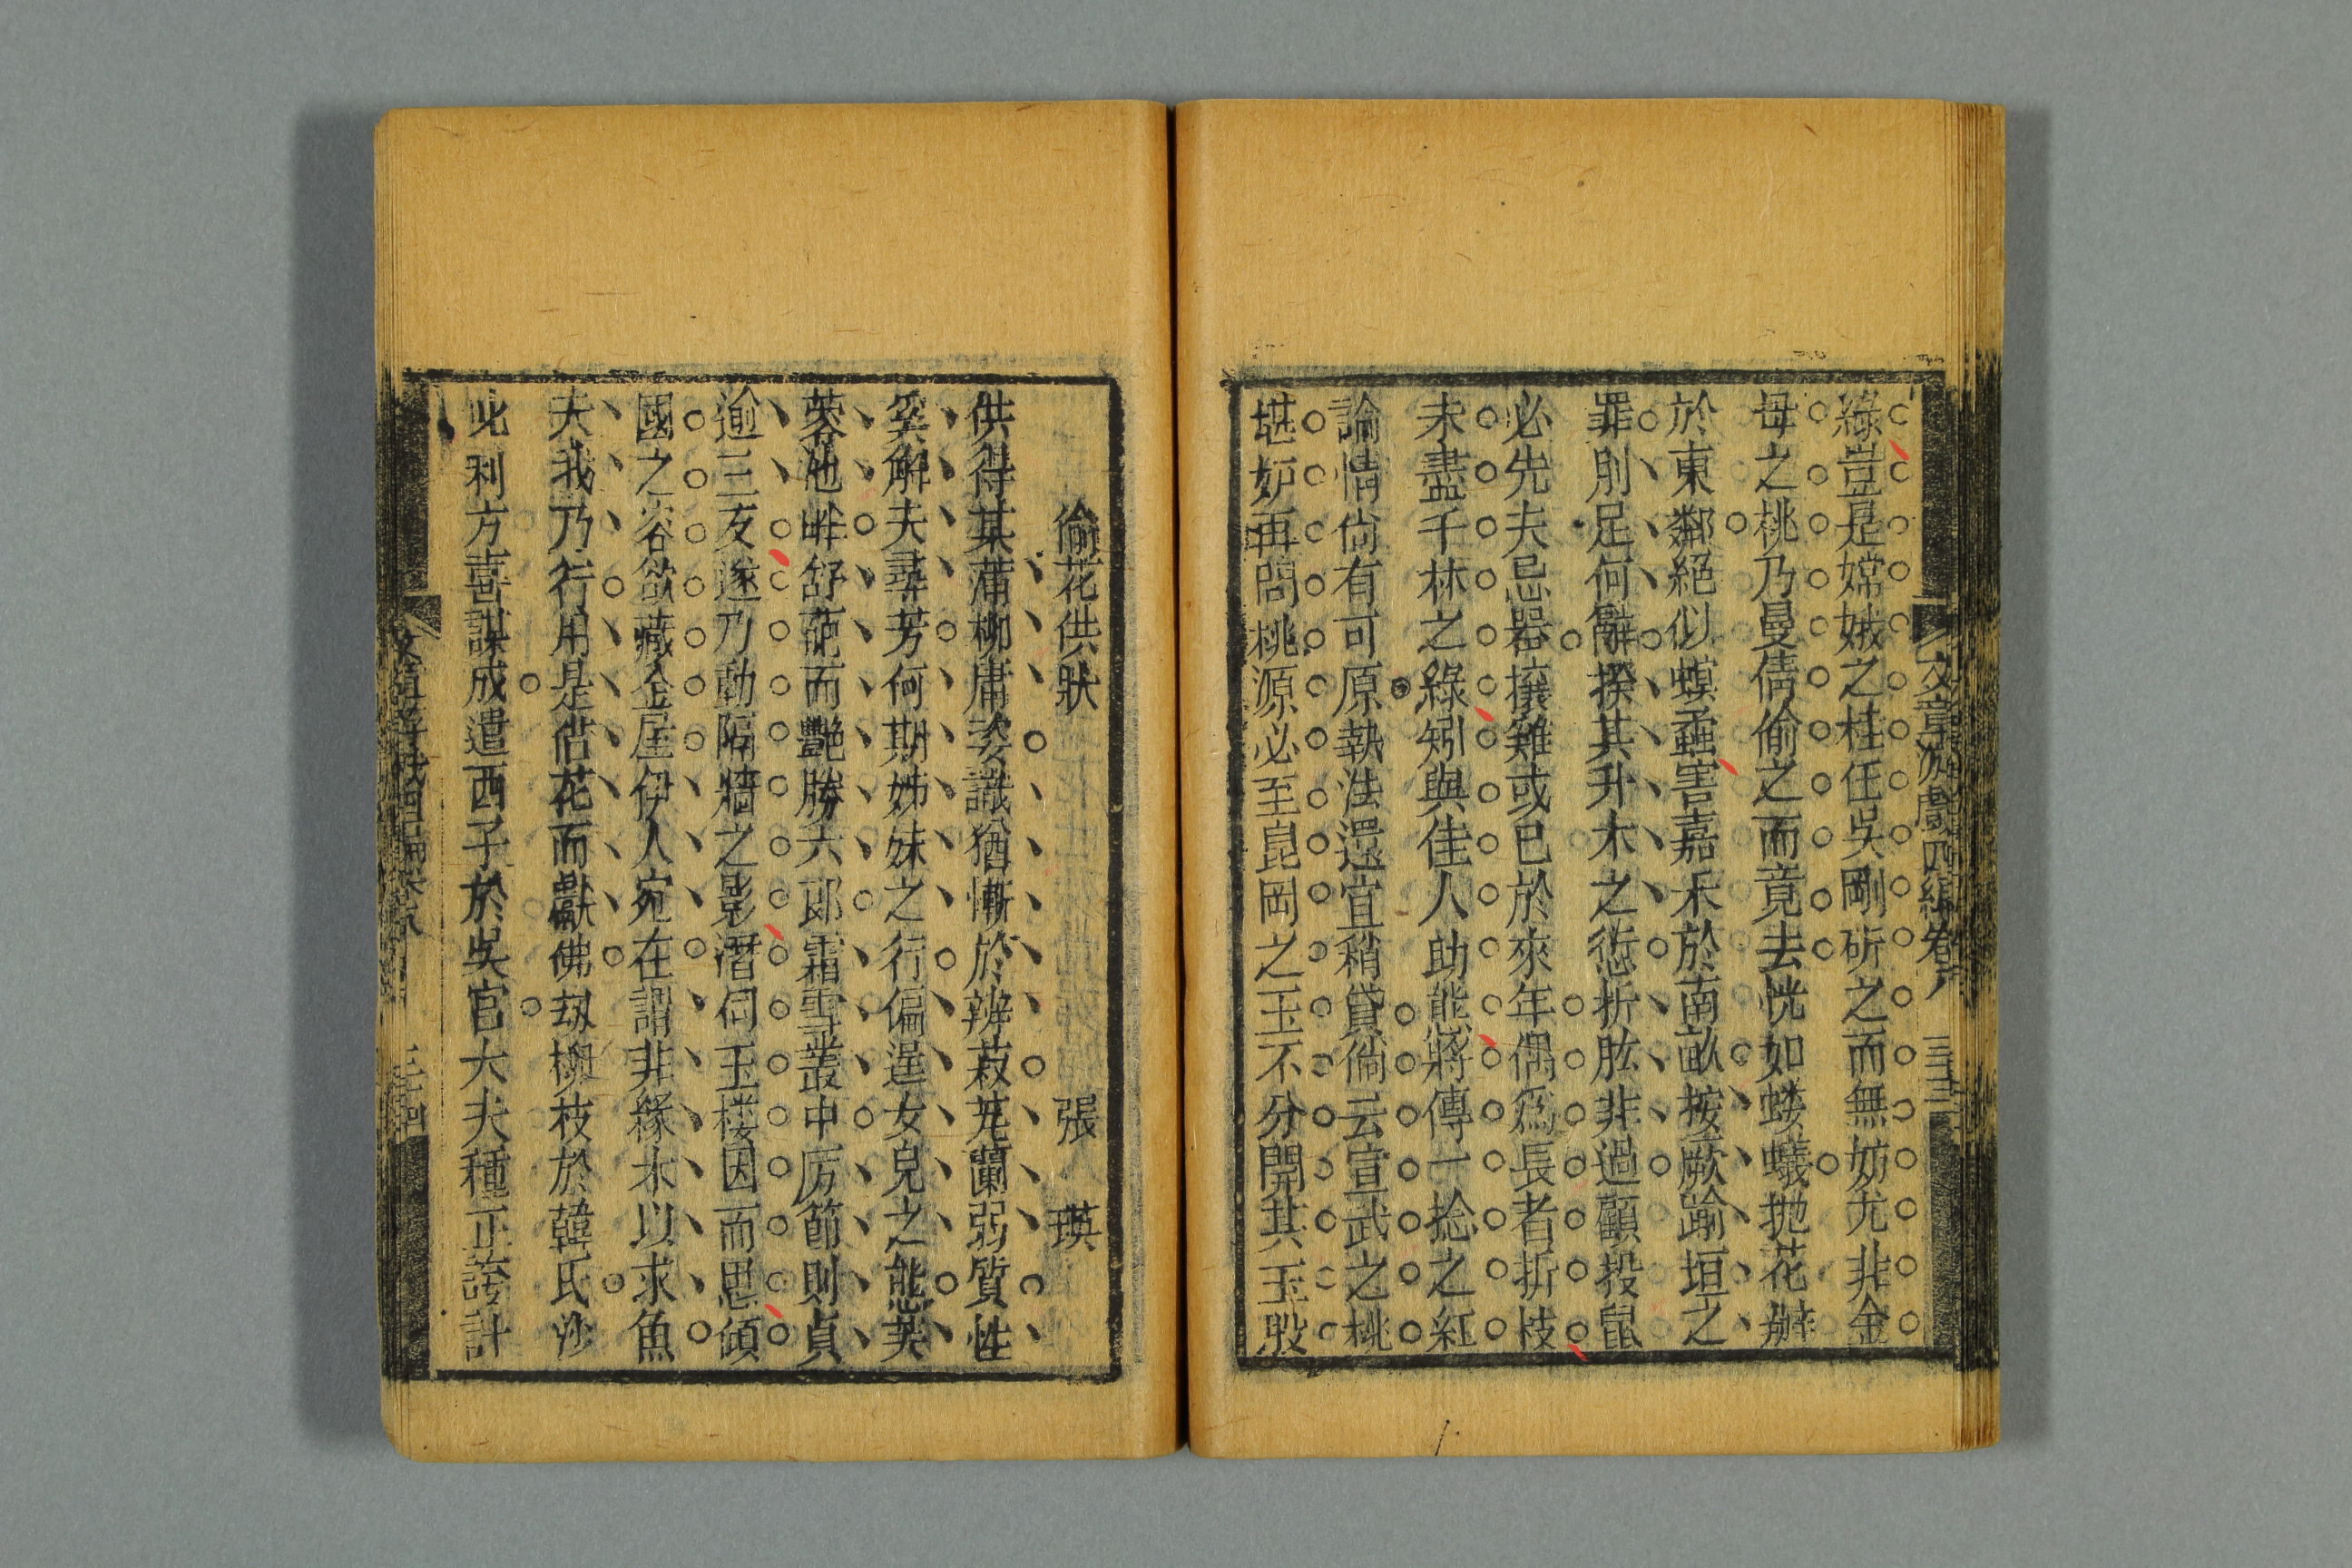 文章游戲四編卷八　三十三
綠豈是嫦娥之桂任吳剛斫之而無妨尤非金
母之桃乃曼倩偷之而竟去恍如蜂蟻拋花瓣
於東鄰絕似螟螽害嘉禾於南畝按厥踰垣之
罪刖足何辭揆其升木之愆折肱非過顧投鼠
必先夫忌器攘雞或已於來年偶爲長者折枝
未盡千林之綠矧與佳人助態將傳一捻之紅
論情尙有可原執法還宜稍貸倘云宣武之桃
堪妒再問桃源必至崑岡之玉不分開其玉毀
偷花供狀　張　瑛
供得某蒲柳庸姿識猶慚於辨菽芄蘭弱質性
奚解夫尋芳何期姊妹之行偏逞女兒之態芙
蓉池畔舒葩而艷勝六郎霜雪叢中厉節則貞
逾三友遂乃動隔牆之影潛伺玉樓因而思傾
國之容欲藏金屋伊人宛在謂非緣木以求魚
夫我乃行用是借花而獻佛刼柳枝於韓氏沙
吒利方喜謀成遣西子於吳宮大夫種正誇計
三十四